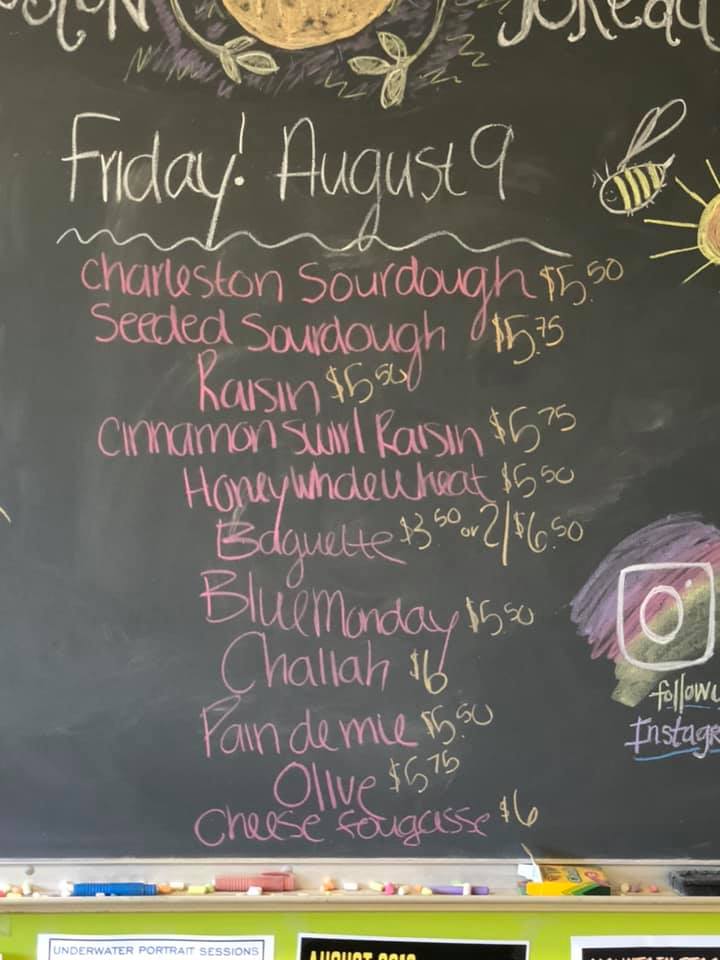 Friday! August 9
Charleston Sourdough $5.50
Seeded Sourdough $5.75
Raisin $5.50
Cinnamon swirl Raisin $5.75
Honey whole wheat $5.50
Baguette $3.50 or 2/$6.50
Blue Monday $5.50
Challah $6
Pain de mie $5.50
Olive $5.75
Cheese fougasse $6
follow u
Instagr
UNDERWATER PORTRAIT SESSIONS
AUGUST 2019